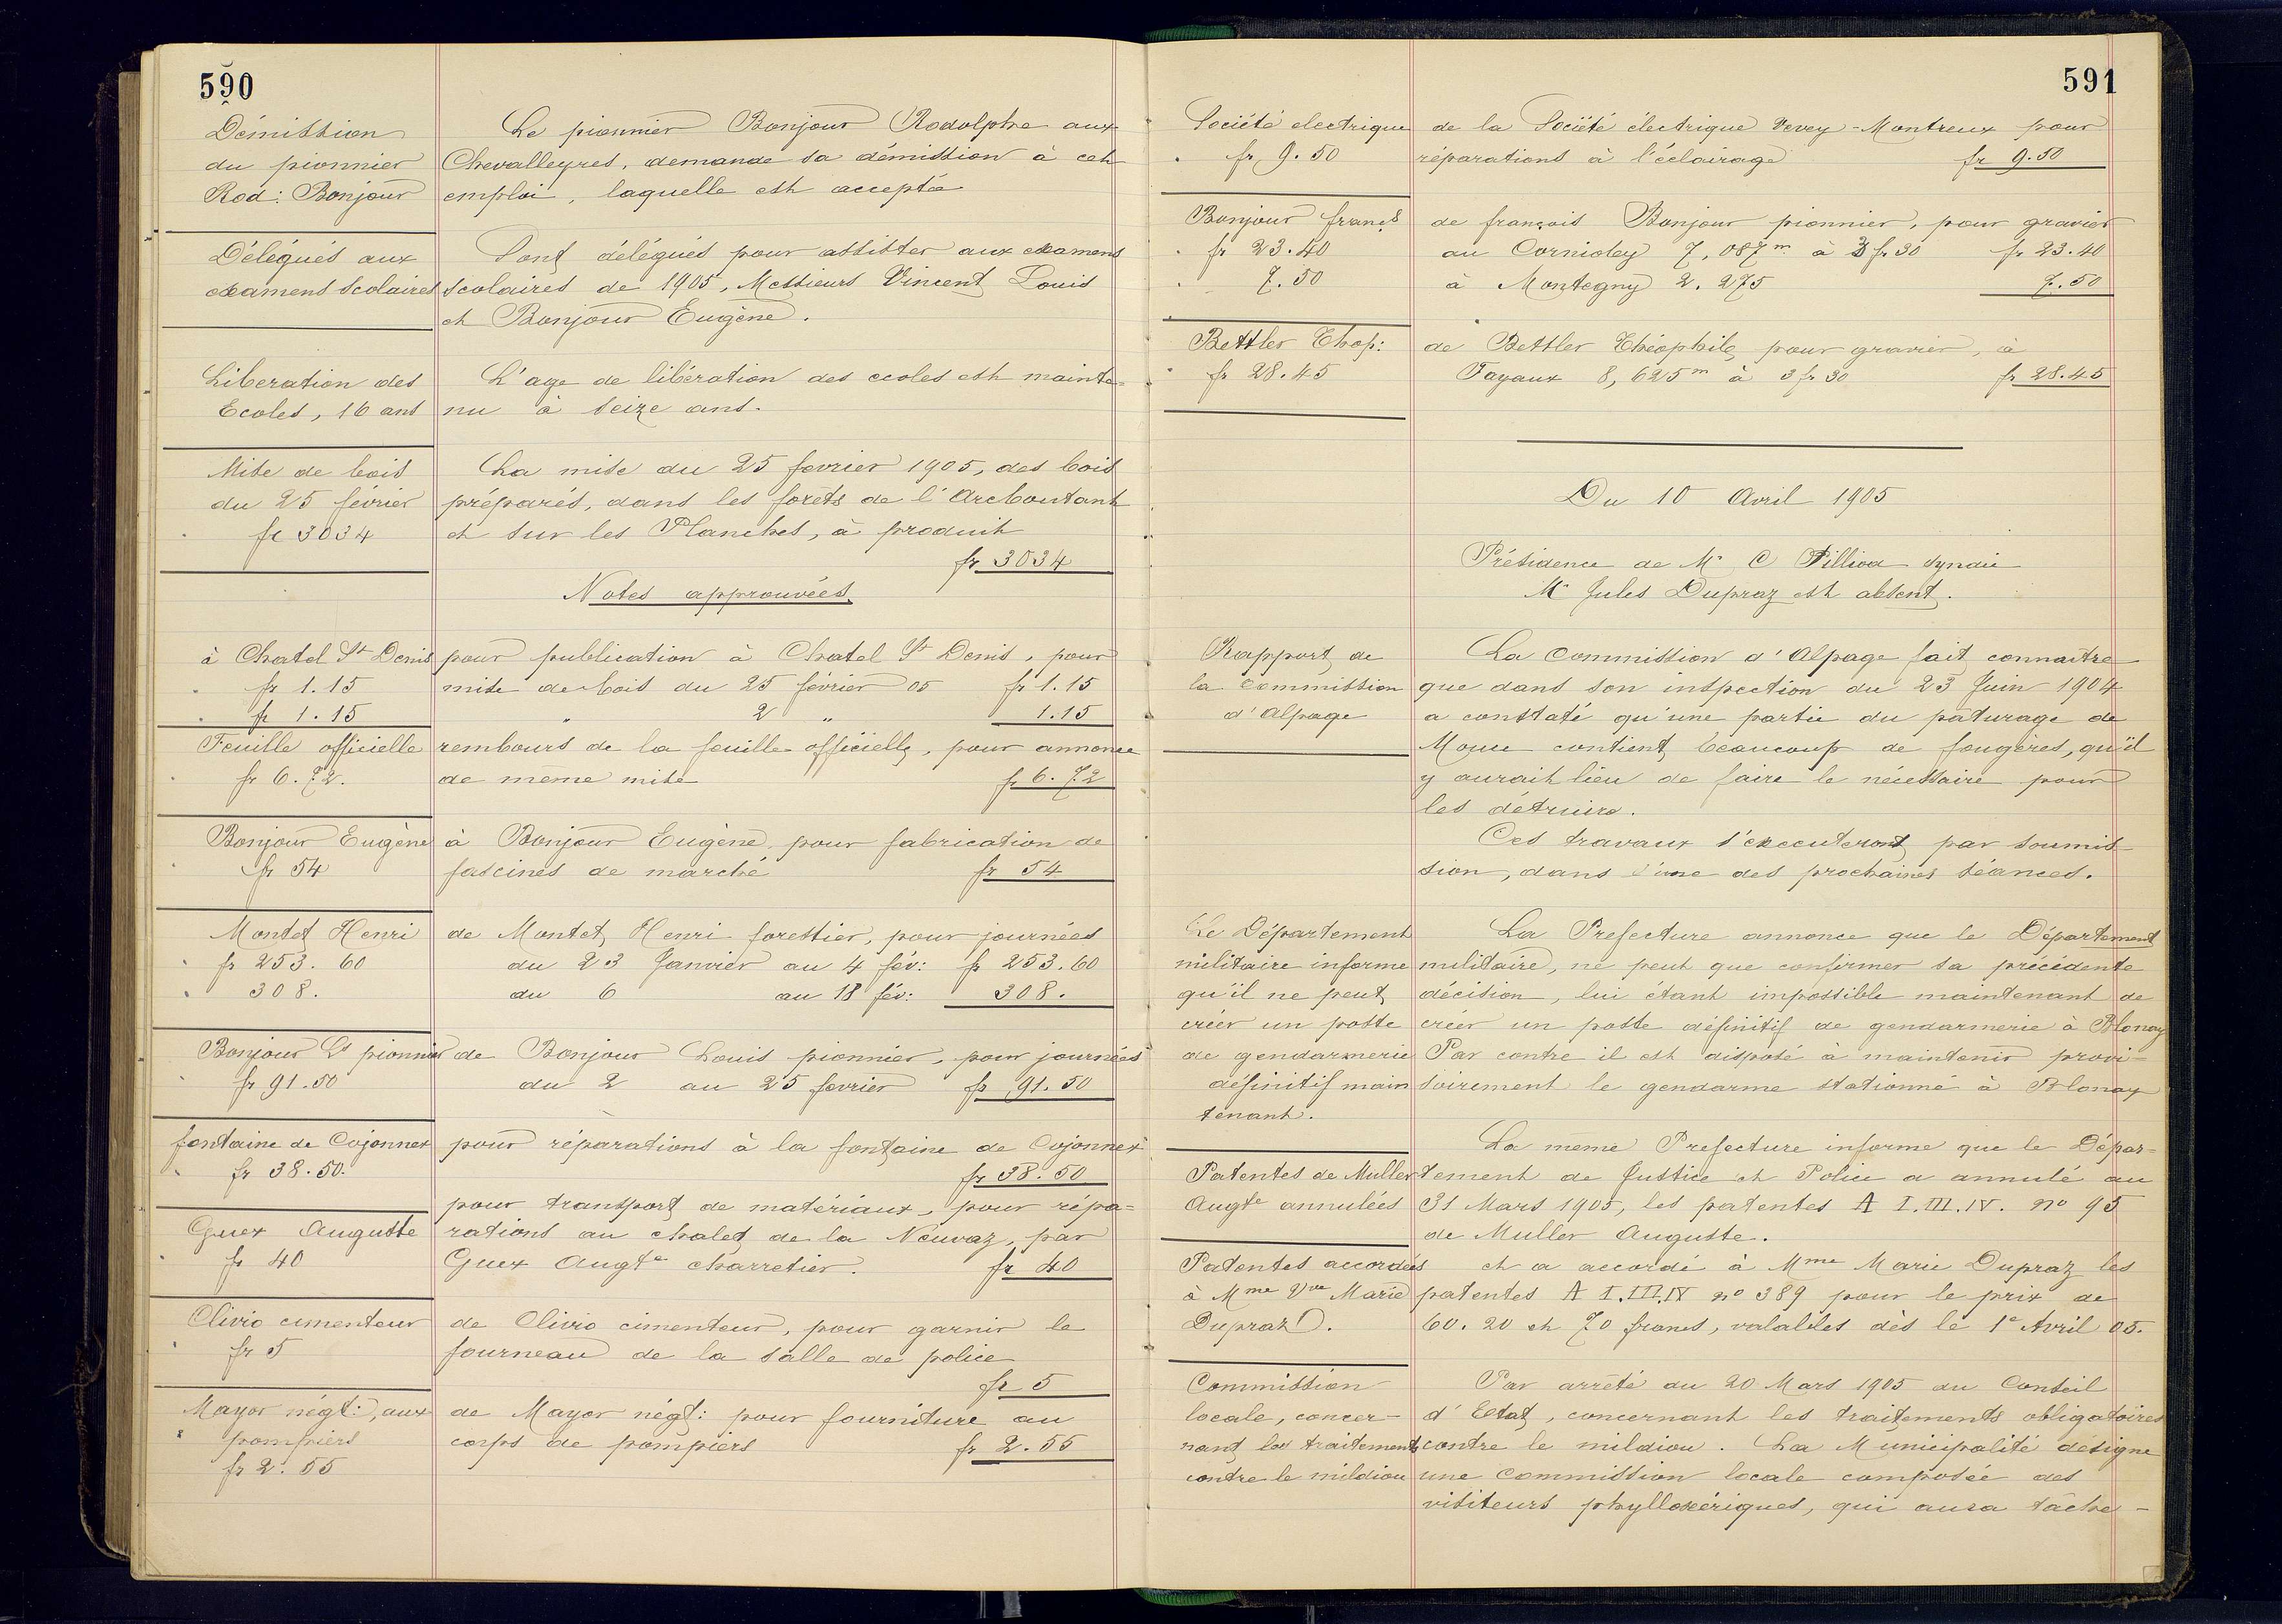 590
Démission
du pionnier
Rod: Bonjour
Le pionnier Bonjour Rodolphe aux
Chevalleyres, demande sa démission à cet
emploi, laquelle est acceptée
Délégués aux
examens scolaires
Sont délégués pour assister aux examens
scolaires de 1905, Messieurs Vincent Louis
et Bonjour Eugène.
Liberation des
Ecoles, 16 ans
L'age de libération des ecoles est mainte-
nu à seize ans.
Mise de bois
du 25 février
fr 3034
La mise du 25 fevrier 1905, des bois
préparés, dans les forêts de l'Arcboutant
et sur les Planches, à produit
fr 3034
Notes approuvées.
à Chatel St Denis
fr 1.15
fr 1.15
pour publication à Chatel St Denis, pour
mise de bois du 25 février 05 fr 1.15
" 2 " 1.15
Feuille officielle
fr 6.72.
rembours de la feuille officielle, pour annonce
de même mise fr 6.72
Bonjour Eugène
fr 54
à Bonjour Eugène, pour fabrication de
fascines de marché fr 54
Montet Henri
fr 253.60
308.
de Montet Henri forestier, pour journées
du 23 Janvier au 4 fév: fr 253.60
du 6 au 18 fév: 308.
Bonjour Ls pionnier
fr 91.50
de Bonjour Louis pionnier, pour journées
du 2 au 25 fevrier fr 91.50
fontaine de Cojonnex
fr 38.50.
pour réparations à la fontaine de Cojonnex
fr 38.50
Guex Auguste
fr 40
pour transport de matériaux, pour répa-
rations au chalet de la Neuvaz, par
Guex Augte charretier. fr 40
Olivio cimenteur
fr 5
de Olivio cimenteur, pour garnir le
fourneau de la salle de police
fr 5
Mayor négt:, aux
pompiers
fr 2.55
de Mayor négt: pour fourniture au
corps de pompiers fr 2.55
591
Société electrique
fr 9.50
de la Société électrique Vevey-Montreux pour
réparations à l'éclairage fr 9.50
Bonjour françs
fr 23.40
7.50
de françois Bonjour pionnier, pour gravier
au Cornioley 7,087m à 3 fr 30 fr 23.40
à Montegny 2.275 7.50
Bettler Thop:
fr 28.45
de Bettler Théophile, pour gravier, à
Tayaux 8,625m à 3 fr 30 fr 28.45
Du 10 Avril 1905
Présidence de Mr C Pilliod syndic
Mr Jules Dupraz est absent.
Rapport de
la Commission
d'Alpage
La Commission d'Alpage fait connaître
que dans son inspection du 23 Juin 1904
a constaté qu'une partie du pâturage de
contient beaucoup de fougères, qu'il
y aurait lieu de faire le nécessaire pour
les détruire.
Ces travaux s'executeront par soumis-
sion, dans l'une des prochaines séances.
Le Département
militaire informe
qu'il ne peut
créer un poste
de gendarmerie
définitif main
tenant.
La Prefecture annonce que le Département
militaire, ne peut que confirmer sa précédente
décision, lui étant impossible maintenant de
créer un poste définitif de gendarmerie à Blonay
Par contre il est disposé à maintenir provi-
soirement le gendarme stationné à Blonay
Patentes de Muller
Augte annulées
La même Prefecture informe que le Dépar-
tement de Justice et Police a annulé au
31 Mars 1905, les patentes A I.III.IV. no 95
de Muller Auguste.
Patentes accordées
à Mme Vve Marie
Dupraz.
et a accordé à Mme Marie Dupraz les
patentes A I.III.IV no 389 pour le prix de
60. 20 et 70 francs, valables dès le 1e Avril 05.
Commission
locale, concer-
nant les traitements
contre le mildiou
Par arrêté du 20 Mars 1905 du Conseil
d'Etat, concernant les traitements obligatoires
contre le mildiou. La Municipalité désigne
une Commission locale composée des
visiteurs phylloxériques, qui aura tâche-